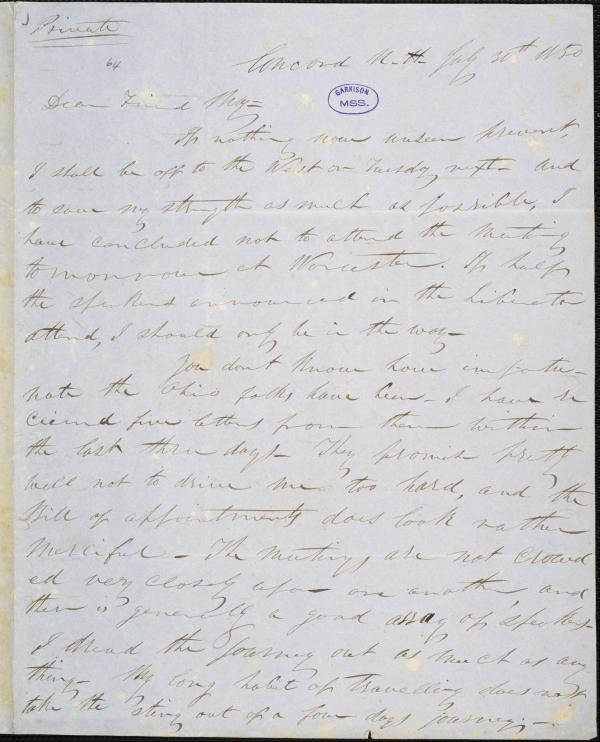 Private
64
Concord N. H. July 30th 1850
GARRISON
MSS.
Dear Friend May—
If nothing now unseen prevent,
I shall be off to the West on Tuesday next— and
to save my strength as much as possible, I
have concluded not to attend the Meeting
tomorrow at Worcester. If half
the speakers announced in the Liberator
attend, I should only be in the way—
You don't know how importu-
nate the Ohio folks have been— I have re
ceived five letters from them within
the last three days— They promise pretty
well not to drive me too hard, and the
Bill of appointments does look rather
Merciful— The meetings are not crowd
ed very closely upon one another, and
there is generally a good array of speakers—
I dread the Journey out as much as any
thing— My long habit of Travelling does not
take the sting out of a four days journey;—